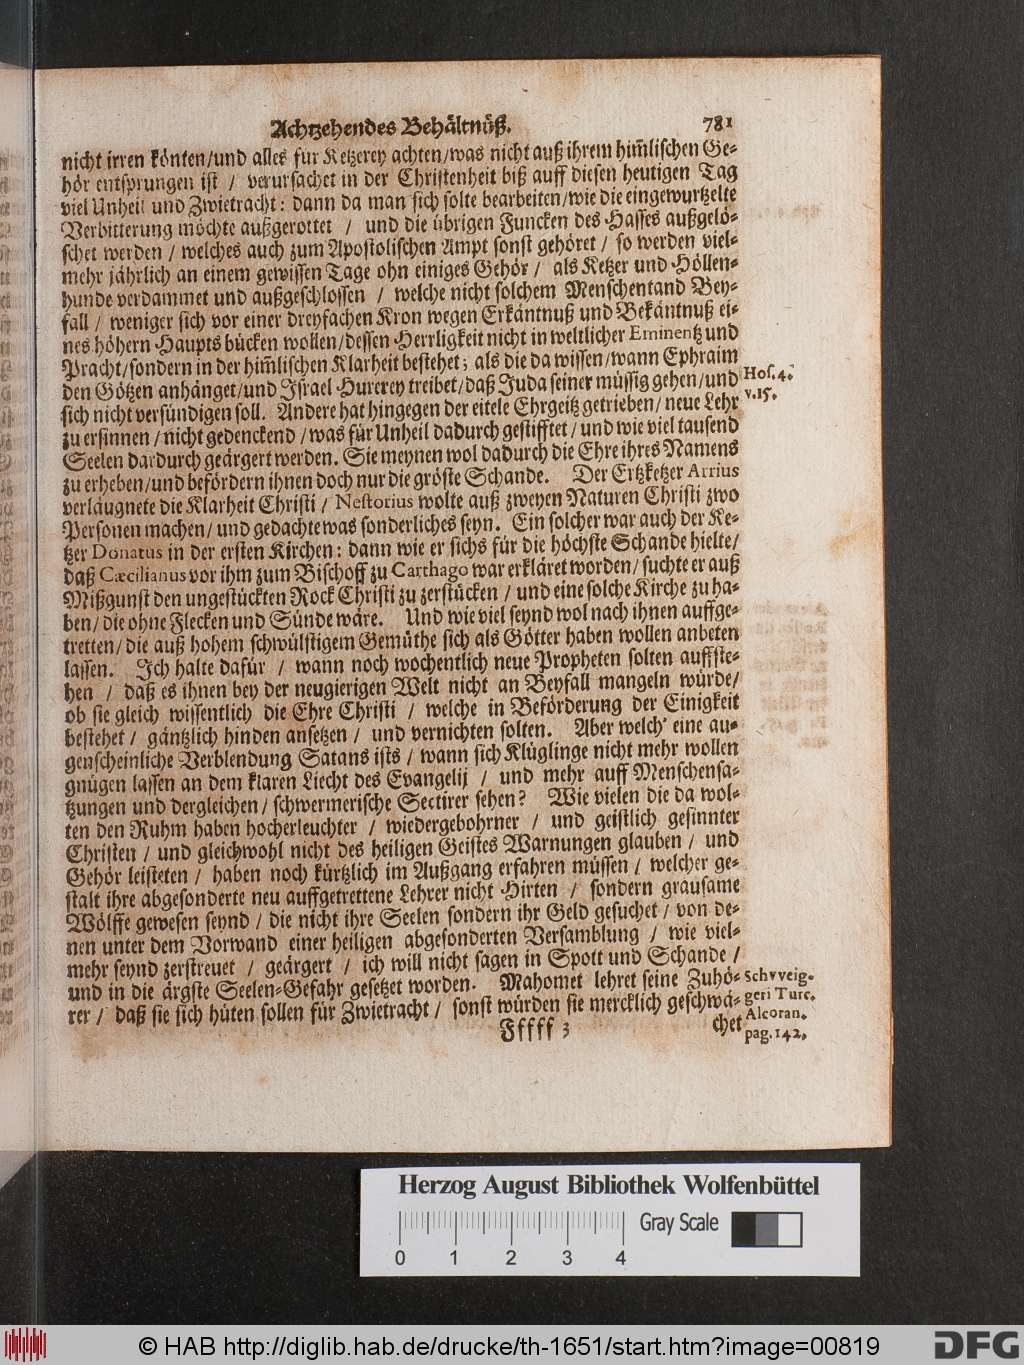 Achtzehendes Behältnüß. 781
nicht irren könten/und alles für Ketzerey achten/was nicht auß ihrem him̃lischen Ge-
hör entsprungen ist / verursachet in der Christenheit biß auff diesen heutigen Tag
viel Unheil und Zwietracht: dann da man sich solte bearbeiten/wie die eingewurtzelte
Verbitterung möchte außgerottet / und die übrigen Funcken des Hasses außgelö-
schet werden / welches auch zum Apostolischen Ampt sonst gehöret / so werden viel-
mehr jährlich an einem gewissen Tage ohn einiges Gehör / als Ketzer und Höllen-
hunde verdammet und außgeschlossen / welche nicht solchem Menschentand Bey-
fall / weniger sich vor einer dreyfachen Kron wegen Erkäntnuß und Bekäntnuß ei-
nes höhern Haupts bücken wollen/dessen Herrligkeit nicht in weltlicher Eminentz und
Pracht/sondern in der him̃lischen Klarheit bestehet; als die da wissen/wann Ephraim
den Götzen anhänget/und Israel Hurerey treibet/daß Juda seiner müssig gehen/und
Hos. 4.
v.15.
sich nicht versündigen soll. Andere hat hingegen der eitele Ehrgeitz getrieben/ neue Lehr
zu ersinnen / nicht gedenckend / was für Unheil dadurch gestifftet / und wie viel tausend
Seelen dardurch geärgert werden. Sie meynen wol dadurch die Ehre ihres Namens
zu erheben/und befördern ihnen doch nur die gröste Schande. Der Ertzketzer Arrius
verläugnete die Klarheit Christi / Nestorius wolte auß zweyen Naturen Christi zwo
Personen machen/ und gedachte was sonderliches seyn. Ein solcher war auch der Ke-
tzer Donatus in der ersten Kirchen: dann wie er sichs für die höchste Schande hielte/
daß Cæcilianus vor ihm zum Bischoff zu Carthago war erkläret worden/ suchte er auß
Mißgunst den ungestückten Rock Christi zu zerstücken / und eine solche Kirche zu ha-
ben/ die ohne Flecken und Sünde wäre. Und wie viel seynd wol nach ihnen auffge-
tretten/ die auß hohem schwülstigem Gemüthe sich als Götter haben wollen anbeten
lassen. Ich halte dafür / wann noch wochentlich neue Propheten solten auffste-
hen / daß es ihnen bey der neugierigen Welt nicht an Beyfall mangeln würde/
ob sie gleich wissentlich die Ehre Christi / welche in Beförderung der Einigkeit
bestehet / gäntzlich hinden ansetzen / und vernichten solten. Aber welch' eine au-
genscheinliche Verblendung Satans ists / wann sich Klüglinge nicht mehr wollen
gnügen lassen an dem klaren Liecht des Evangelij / und mehr auff Menschensa-
tzungen und dergleichen / schwermerische Sectirer sehen? Wie vielen die da wol-
ten den Ruhm haben hocherleuchter / wiedergebohrner / und geistlich gesinnter
Christen / und gleichwohl nicht des heiligen Geistes Warnungen glauben / und
Gehör leisteten / haben noch kürtzlich im Außgang erfahren müssen / welcher ge-
stalt ihre abgesonderte neu auffgetrettene Lehrer nicht Hirten / sondern grausame
Wölffe gewesen seynd / die nicht ihre Seelen sondern ihr Geld gesuchet / von de-
nen unter dem Vorwand einer heiligen abgesonderten Versamblung / wie viel-
mehr seynd zerstreuet / geärgert / ich will nicht sagen in Spott und Schande /
und in die ärgste Seelen-Gefahr gesetzet worden. Mahomet lehret seine Zuhö-
rer / daß sie sich hüten sollen für Zwietracht / sonst würden sie mercklich geschwä-
Schvveig-
geri Turc.
Alcoran.
pag. 142.
Fffff 3 chet
Herzog August Bibliothek Wolfenbüttel
Gray Scale
0 1 2 3 4
© HAB http://diglib.hab.de/drucke/th-1651/start.htm?image=00819
DFG